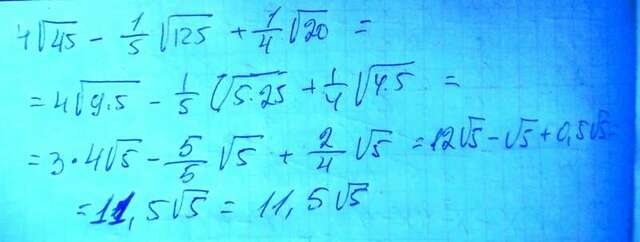 4√45 - 1/5 √125 + 1/4 √20 =
= 4√9·5 - 1/5 √5·25 + 1/4 √4·5 =
= 3·4√5 - 5/5 √5 + 2/4 √5 = 12√5 - √5 + 0,5√5 =
= 11,5√5 = 11,5√5